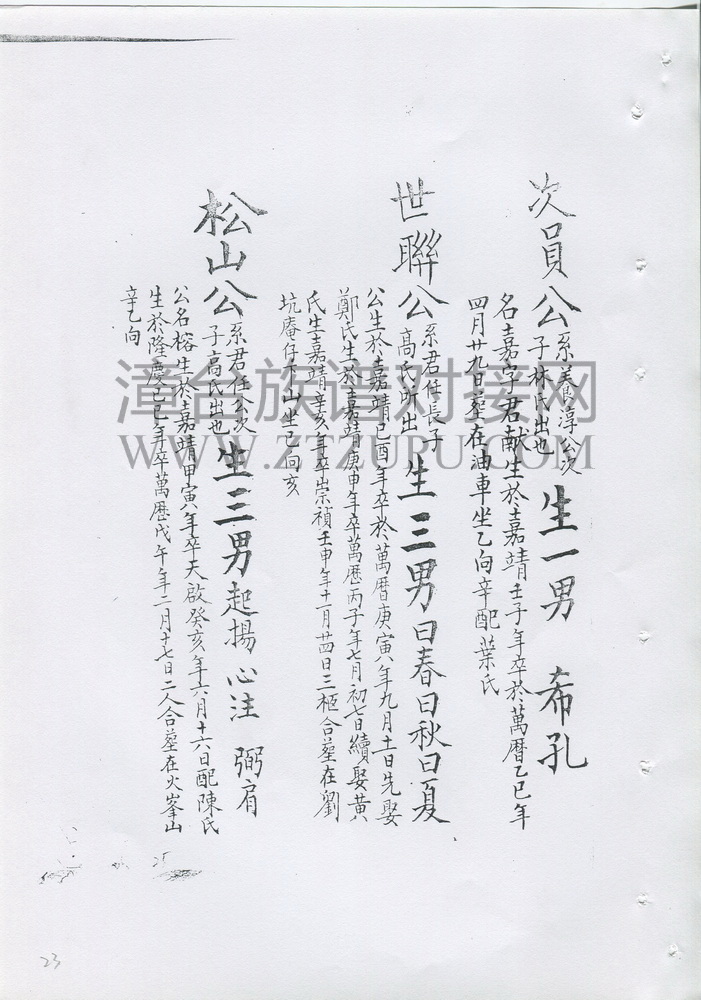 次員公 系美淳公次
子林氏出也 生一男 希孔
名嘉字君献生於嘉靖壬子年卒於萬曆乙巳年
四月廿九日葬在油車坐乙向辛配葉氏
世聯公 系君任長子
高氏所出 生三男曰春曰秋曰夏
公生於嘉靖己酉年卒於萬曆庚寅年九月十一日先娶
鄭氏生於嘉靖庚申年卒萬歷丙子年七月初七日續娶黄
氏生嘉靖辛亥年卒崇禎壬申年十一月廿四日三柩合葬在劉
坑庵仔下山坐巳向亥
松山公 系君任公次
子高氏出也 生三男 起揚 心注 弼肩
公名榕生於嘉靖甲寅年卒天啟癸亥年六月十六日配陳氏
生於隆慶己巳年卒萬歷戊午年二月十七日二人合葬在火峯山
辛乙向
漳台族谱对接网
WWW.ZTZUPU.COM
23